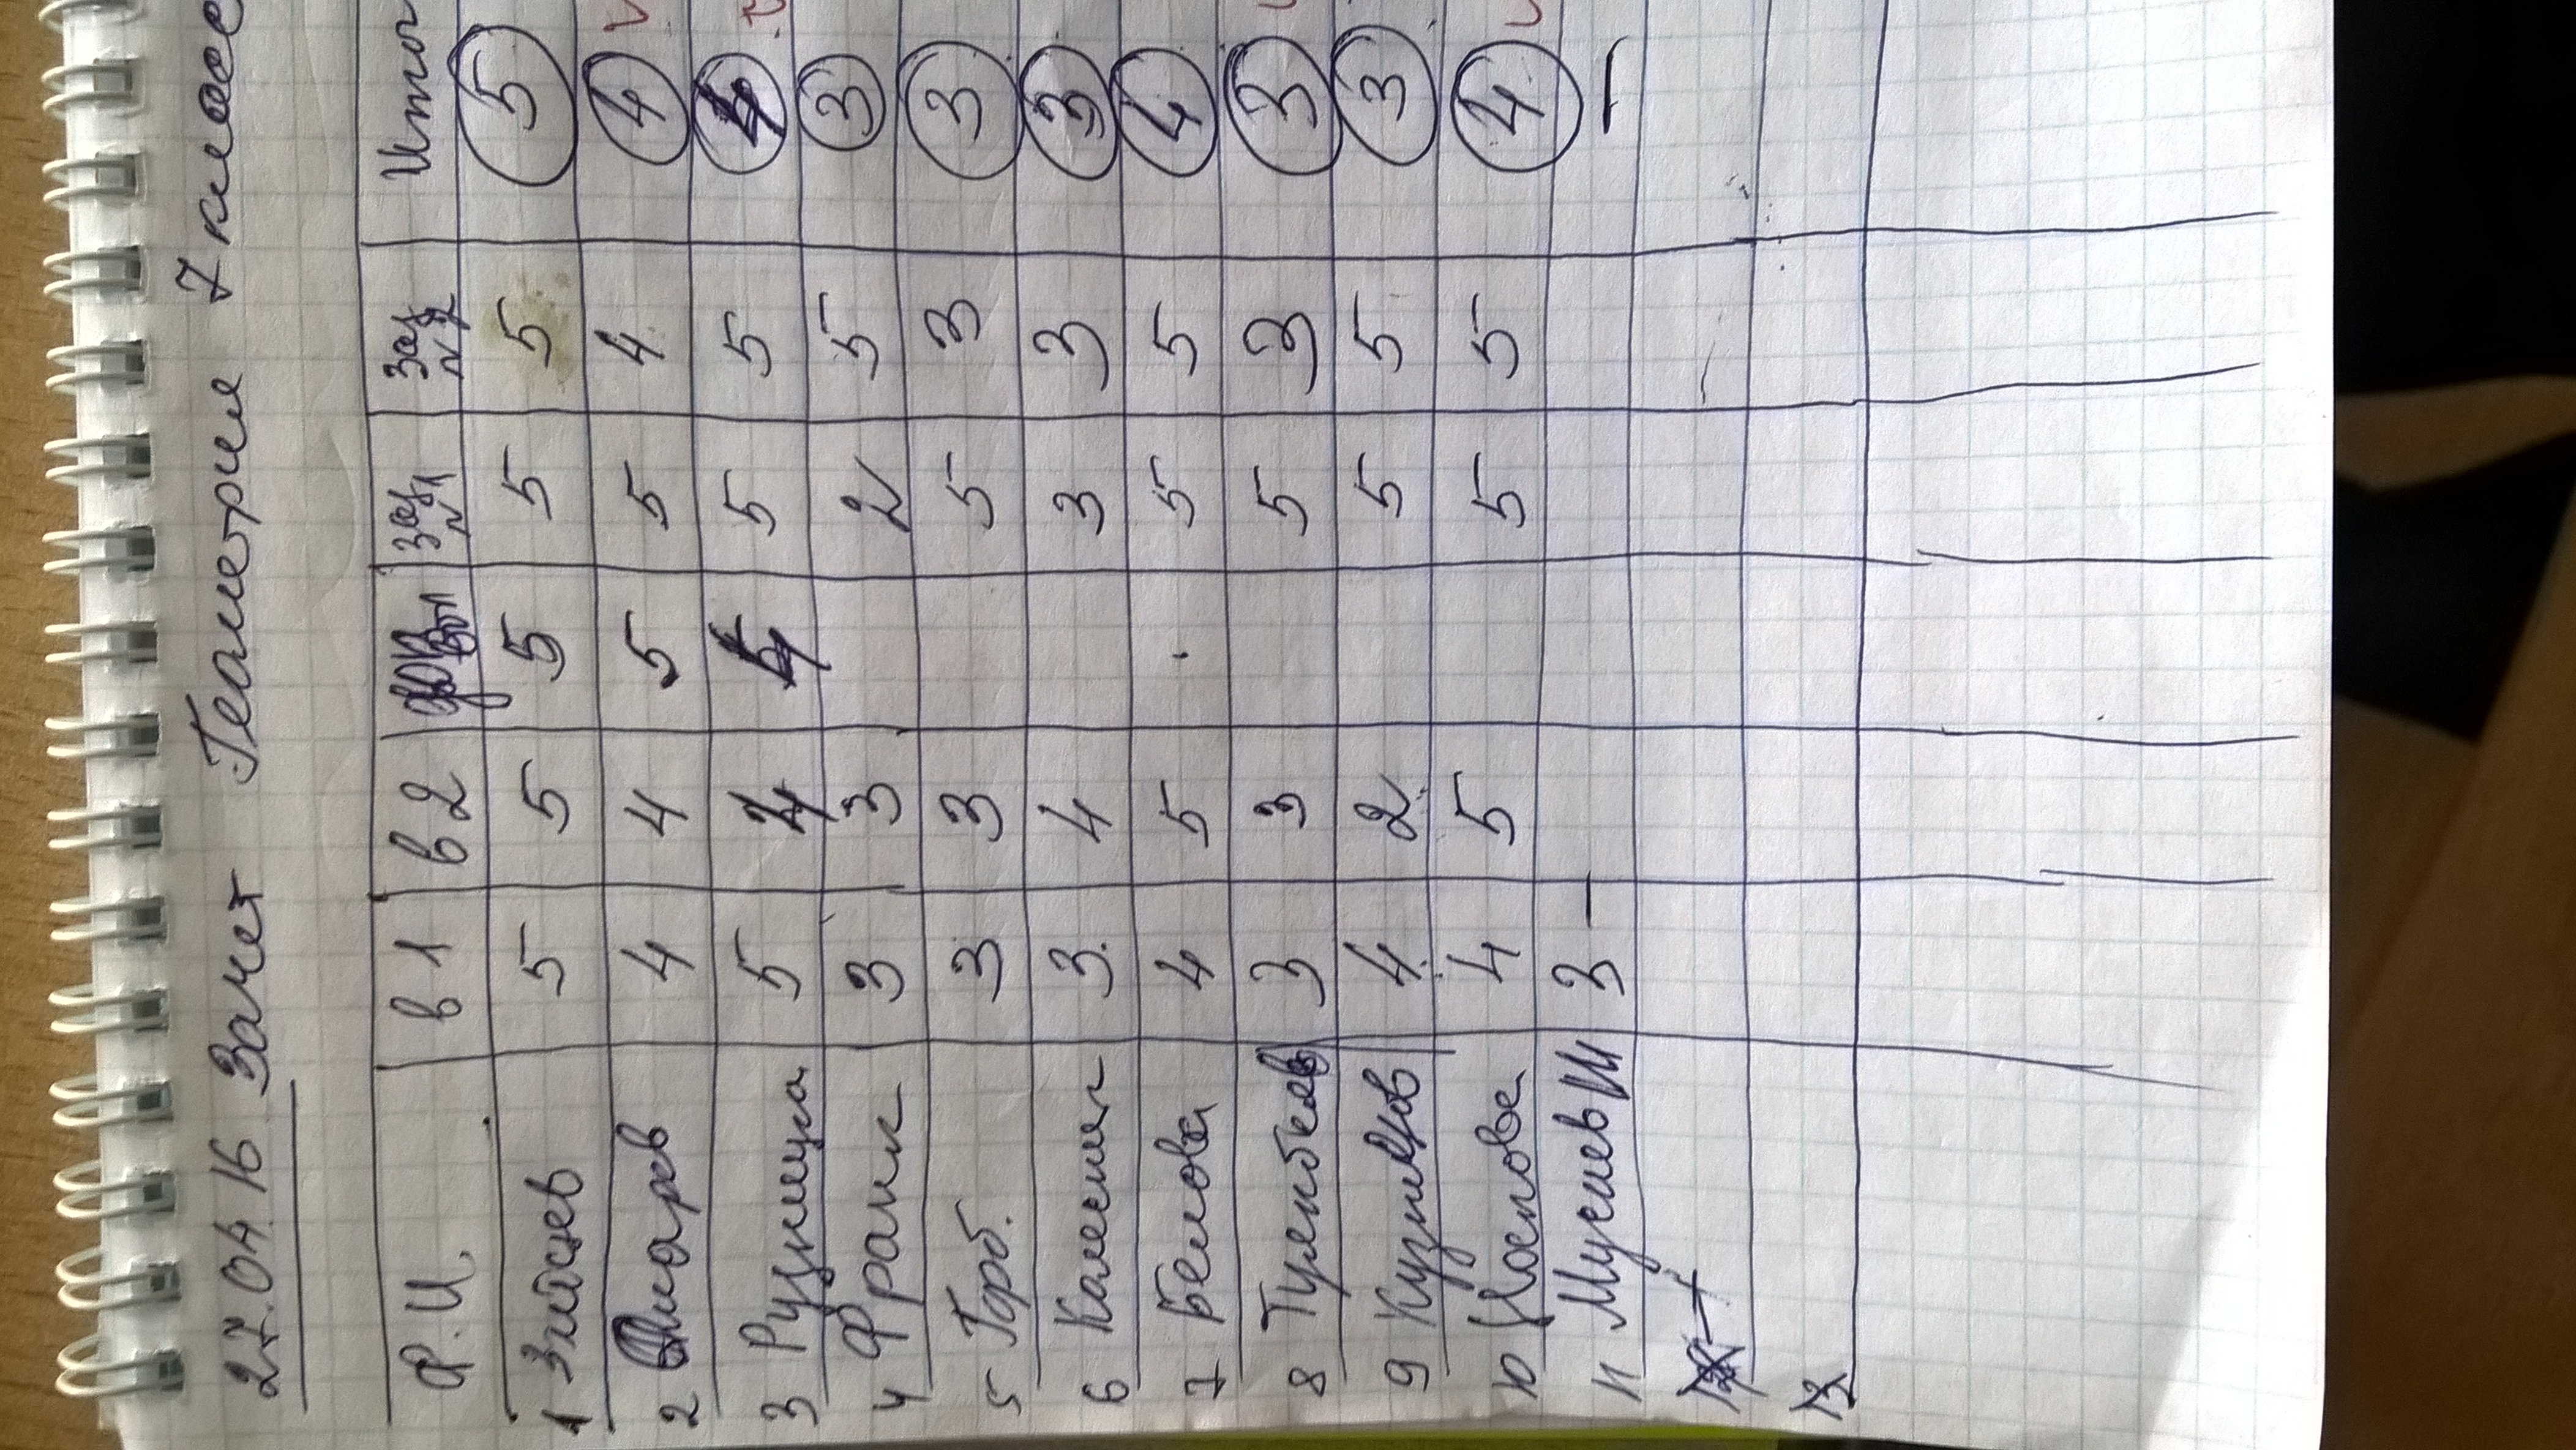 27.04.16 Зачет Геометрия 7 класс
Ф.И. в 1 в 2 зад №1 зад №2 Итог
1 5 5 5 5 5 5
2 4 4 5 5 4 4
3 5 4 5 5 4
4 Франк 3 3 2 5 3
5 Горб. 3 3 5 3 3
6 Калесник 3 4 3 3 3
7 Белова 4 5 5 5 4
8 Тулекбаев 3 3 5 3 3
9 Кузнецов 4 2 5 5 3
10 4 5 5 5 4
11 Мусаев Ш 3 –